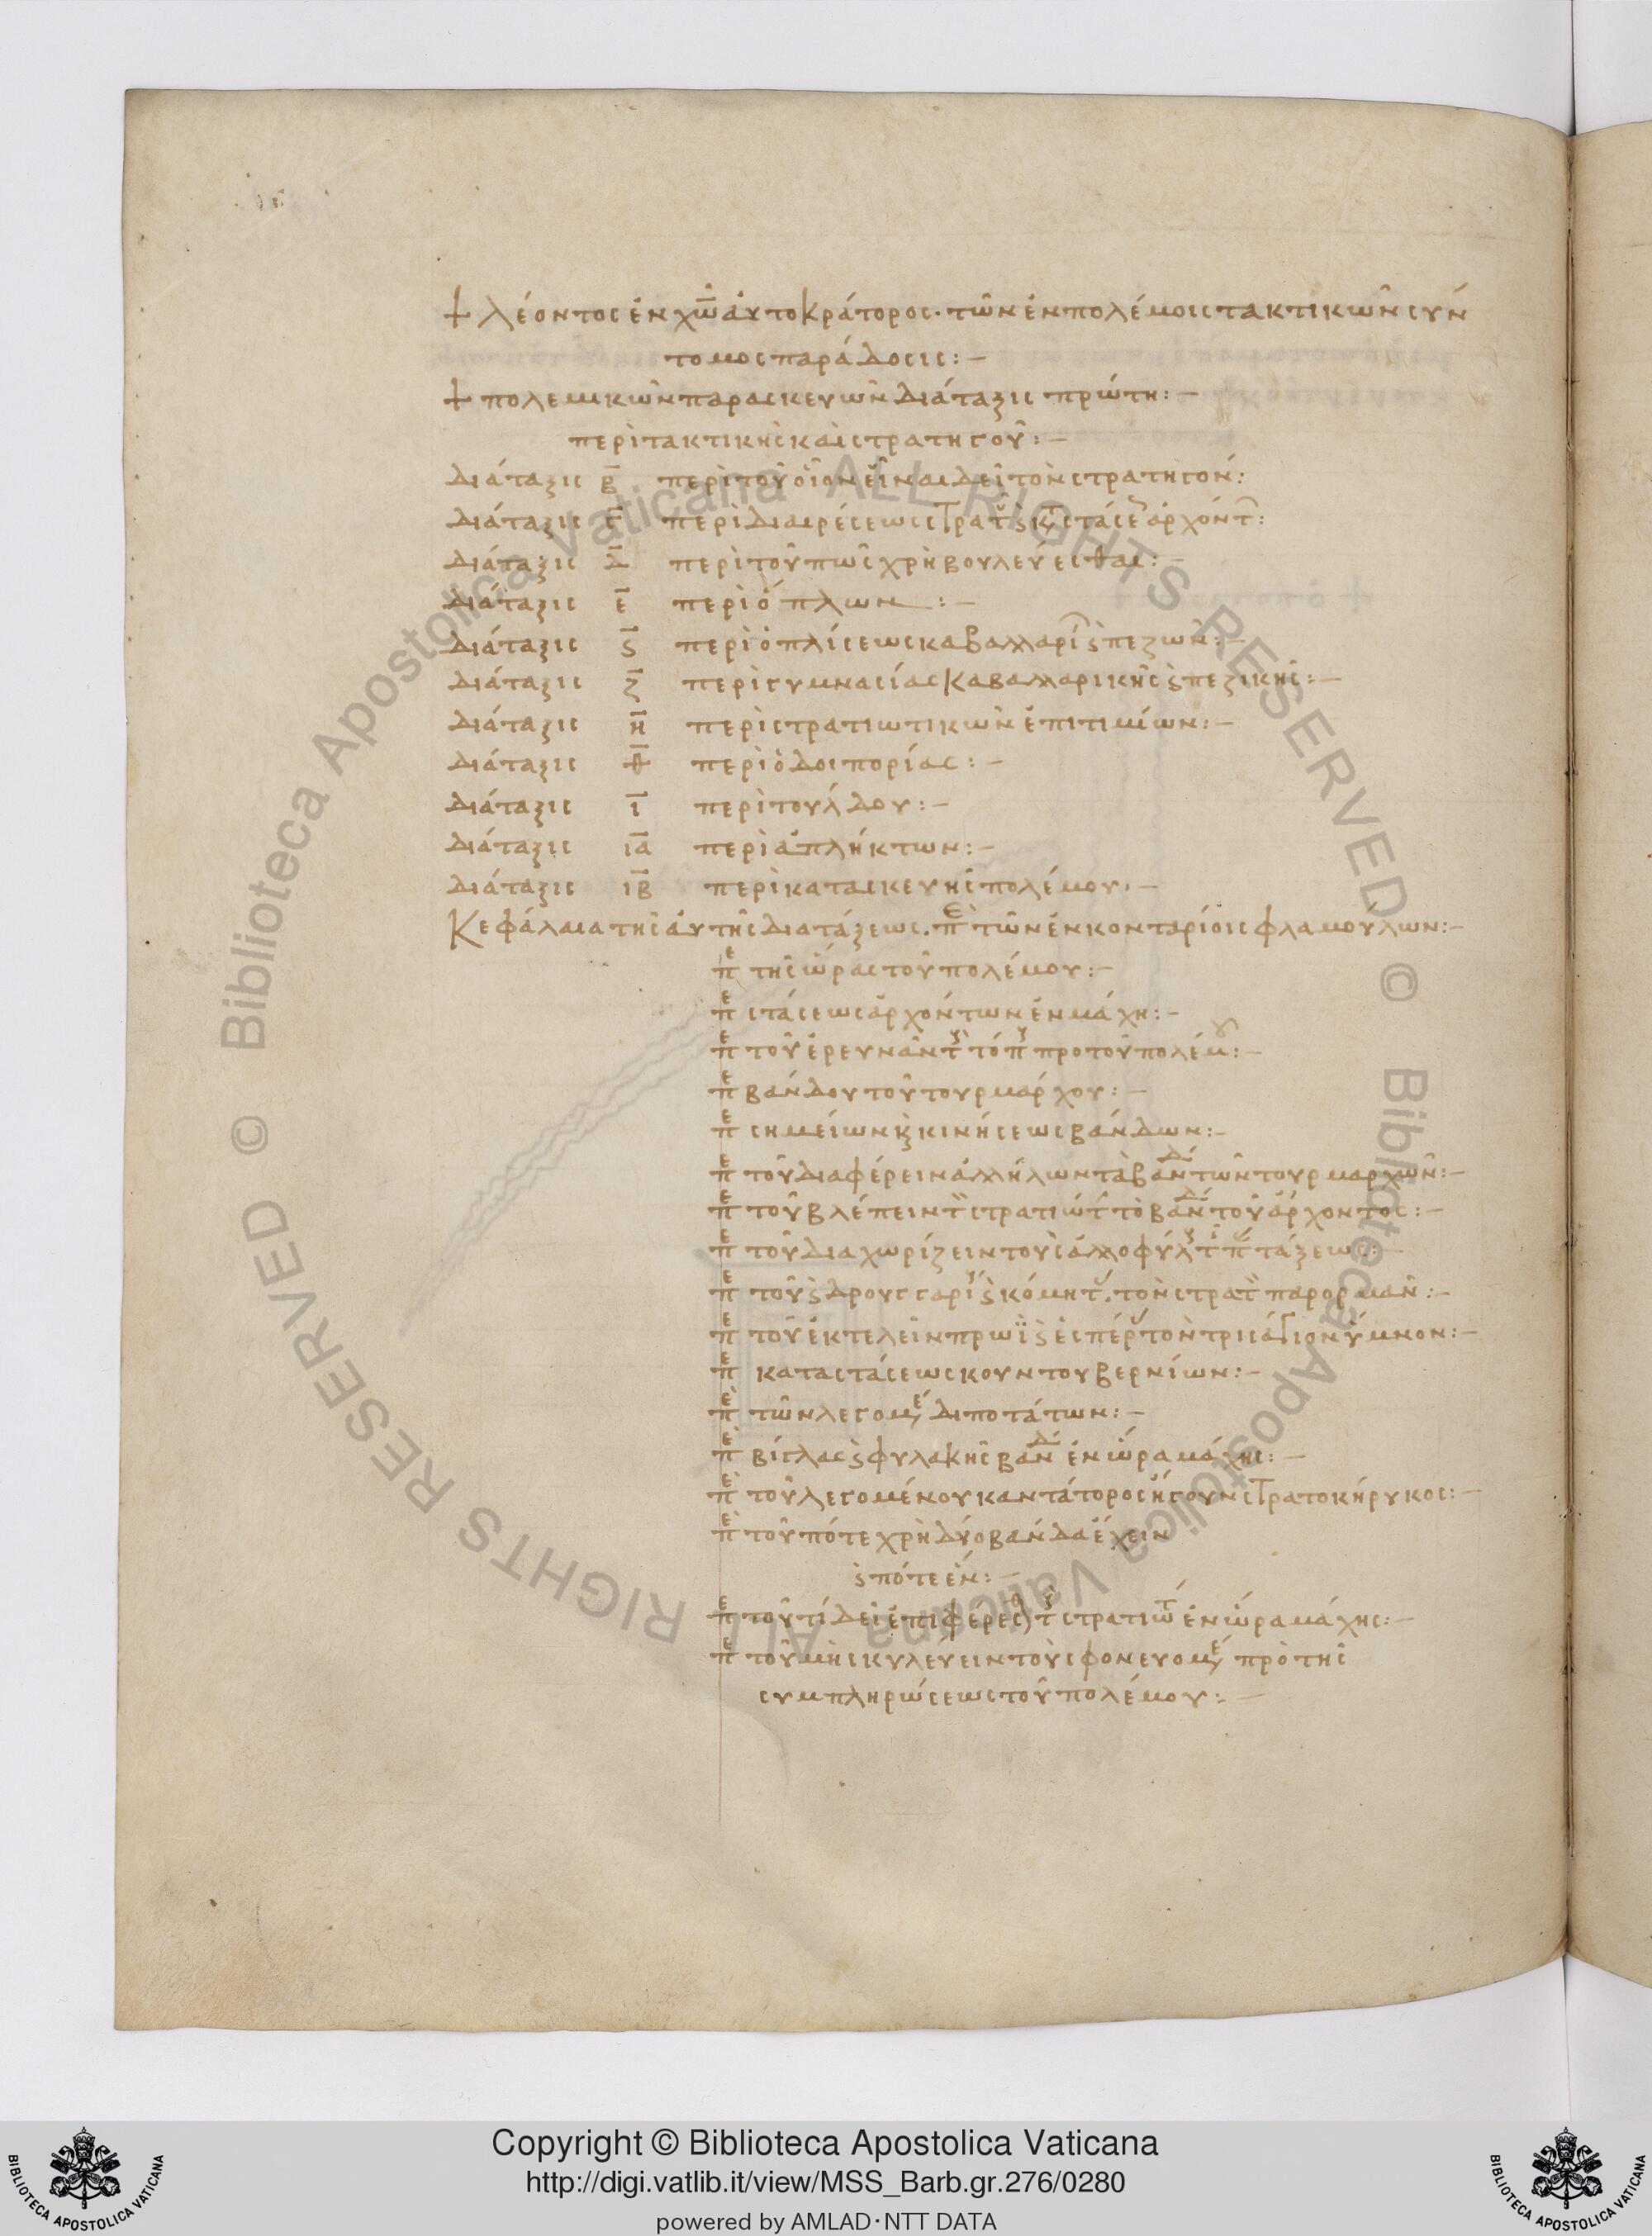 + λέοντος ἐν χω αὐτοκράτορος· τῶν ἐν πολέμοις τακτικῶν σύν
τομος παράδοσις:–
+ πολεμικῶν παρασκευῶν διάταξις πρώτη:–
περὶ τακτικῆς καὶ στρατηγοῦ:–
διάταξις β περὶ τοῦ οἷον εἶναι δεῖ τὸν στρατηγόν:
διάταξις γ περὶ διαιρέσεως στρατ ϛ κ στάσε ἀρχόντ:
διάταξις δ περὶ τοῦ πῶς χρὴ βουλεύεσθαι:–
διάταξις ε περὶ ὅπλων:–
διάταξις ϛ περὶ ὁπλίσεως καβαλλαρί ϛ πεζῶν:–
διάταξις ζ περὶ γυμνασίας καβαλλαρικῆς ϛ πεζικῆς:–
διάταξις η περὶ στρατιωτικῶν ἐπιτιμίων:–
διάταξις θ περὶ ὁδοιπορίας:–
διάταξις ι περὶ τούλδου:–
διάταξις ια περὶ ἀπλήκτων:–
διάταξις ιβ περὶ κατασκευῆς πολέμου·–
Κεφάλαια τῆς αὐτῆς διατάξεως. πε τῶν ἐν κονταρίοις φλαμούλων:–
πε τῆς ὥρας τοῦ πολέμου:–
πε στάσεως ἀρχόντων ἐν μάχη:–
πε τοῦ ἐρευνᾶν τ τόπ προ τοῦ πολέμου:–
πε βάνδου τοῦ τουρμάρχου:–
πε σημείων κ κινήσεως βάνδων:–
πε τοῦ διαφέρειν ἀλλήλων τὰ βανδ τῶν τουρμαρχῶν:–
πε τοῦ βλέπειν τ στρατιώτ τὸ βανδ τοῦ ἄρχοντος:–
πε τοῦ διαχωρίζειν τοὺς ἀλλοφύλ τ π τάξεως:–
πε τοῦ ϛ δρουγγαρί ϛ κόμητ. τὸν στρατ παρορμᾶν:–
πε τοῦ ἐκτελεῖν πρωῒ ϛ ἑσπέρ τὸν τρισάγιον ὕμνον:–
πε καταστάσεως κουντουβερνίων:–
πε τῶν λεγομέ διποτάτων:–
πε βίγλας ϛ φυλακῆς βανδ ἐν ὥρα μάχης:–
πε τοῦ λεγομένου καντάτορος ἤγουν στρατοκήρυκος:–
πε τοῦ πότε χρὴ δύο βάνδα ἔχειν
ϛ πότε ἕν:–
πε τοῦ τί δεῖ ἐπιφέρεσθ τ στρατιώτ ἐν ὥρα μάχης:–
πε τοῦ μὴ σκυλεύειν τοὺς φονευομέ πρὸ τῆς
συμπληρώσεως τοῦ πολέμου:–
© Biblioteca Apostolica Vaticana ALL RIGHTS RESERVED © Biblioteca Apostolica Vaticana ALL RIGHTS RESERVED
Copyright © Biblioteca Apostolica Vaticana
http://digi.vatlib.it/view/MSS_Barb.gr.276/0280
powered by AMLAD·NTT DATA
BIBLIOTECA APOSTOLICA VATICANA
BIBLIOTECA APOSTOLICA VATICANA